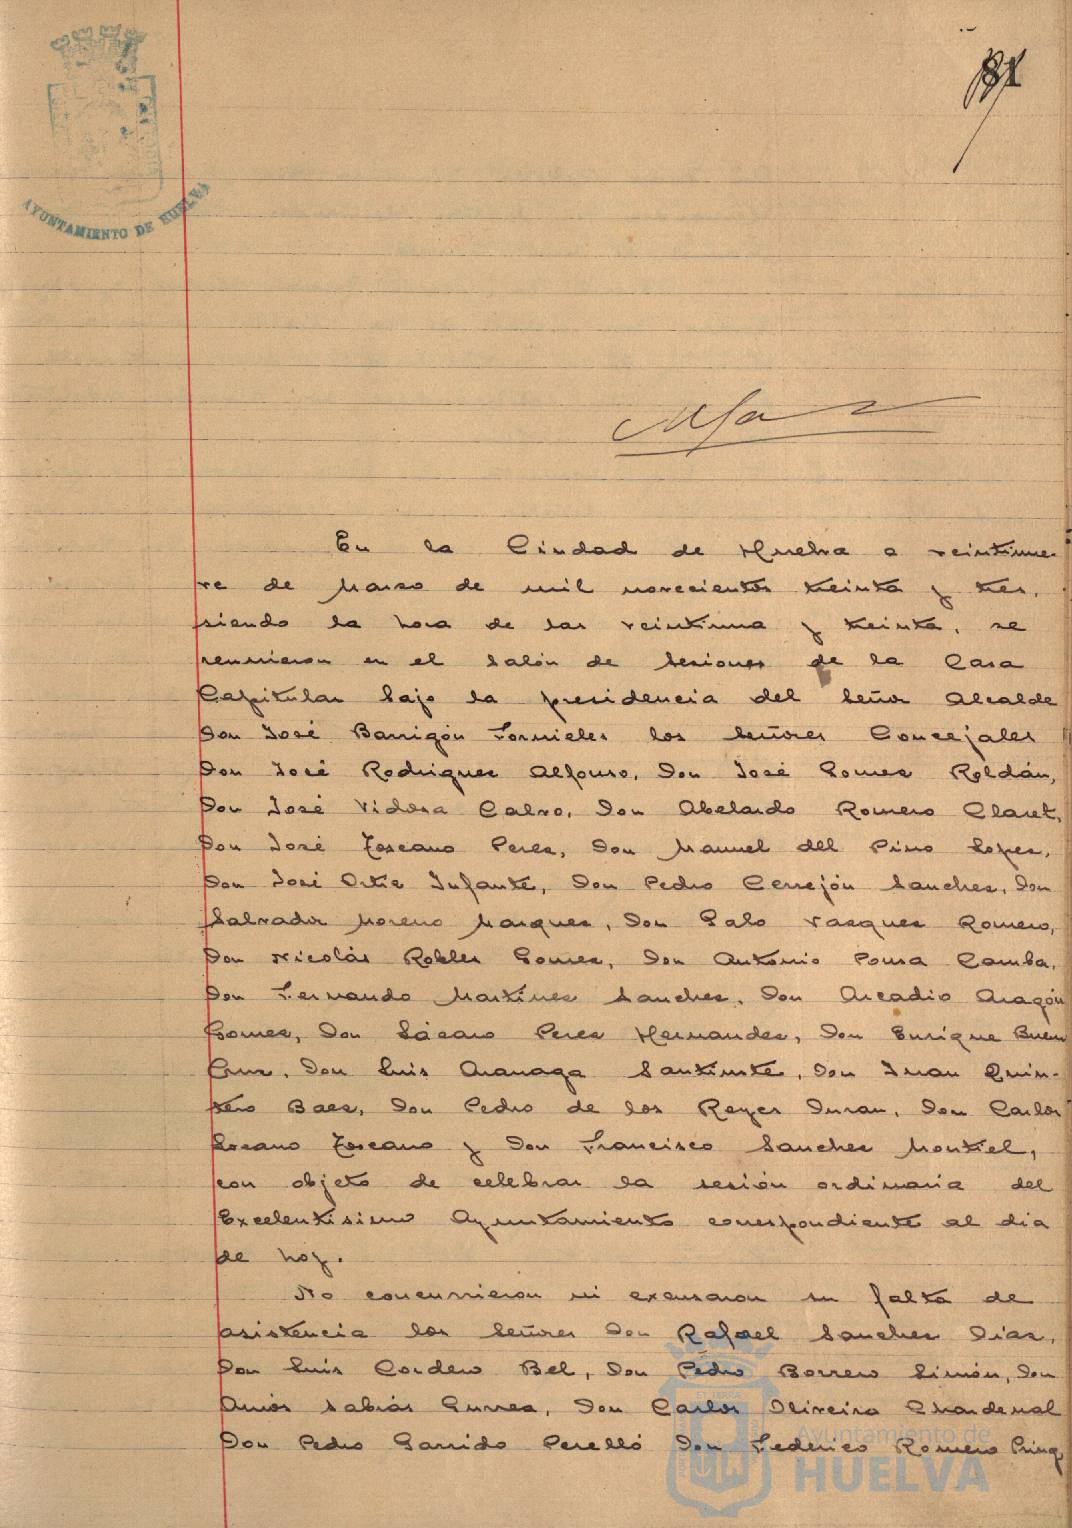 81
AYUNTAMIENTO DE HUELVA
En la Ciudad de Huelva a veintinue-
ve de Marzo de mil novecientos treinta y tres,
siendo la hora de las veintiuna y treinta, se
reunieron en el salón de sesiones de la Casa
Capitular bajo la presidencia del Señor Alcalde
Don José Barrigón Fornieles los Señores Concejales
Don José Rodriguez Alfonso, Don José Gomez Roldán,
Don José Vidosa Calvo, Don Abelardo Romero Claret,
Don José Toscano Perez, Don Manuel del Pino Lopez,
Don José Ortiz Infante, Don Pedro Cerrejón Sanchez, Don
Salvador Moreno Marquez, Don Galo Vazquez Romero,
Don Nicolás Robles Gomez, Don Antonio Pousa Camba,
Don Fernando Martinez Sanchez, Don Arcadio Aragón
Gomez, Don Lázaro Perez Hernandez, Don Enrique Buen
Cruz, Don Luis Aranaga Santiuste, Don Juan Quin-
tero Baez, Don Pedro de los Reyes Duran, Don Carlos
Lozano Toscano y Don Francisco Sanchez Montiel,
con objeto de celebrar la sesión ordinaria del
Excelentisimo Ayuntamiento correspondiente al dia
de hoy.
No concurrieron ni excusaron su falta de
asistencia los Señores Don Rafael Sanchez Diaz,
Don Luis Cordero Bel, Don Pedro Borrero Limón, Don
Amós Sabrás Gurrea, Don Carlos Oliveira Chardenal
Don Pedro Garrido Perelló Don Federico Romero
Ayuntamiento de
HUELVA